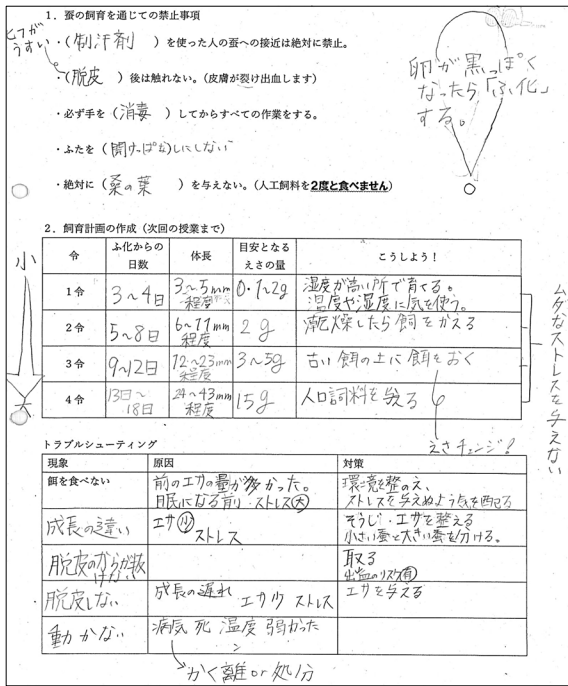 1．蚕の飼育を通じての禁止事項
ヒフがうすい
・(制汗剤　)を使った人の蚕への接近は絶対に禁止。
・(脱皮　)後は触れない。(皮膚が裂け出血します)
・必ず手を(消毒　)してからすべての作業をする。
・ふたを(開けっぱなしにしない
・絶対に(桑の葉　)を与えない。(人工飼料を2度と食べません)
卵が黒っぽく
なったら「ふ化」
する。
2．飼育計画の作成（次回の授業まで）
小
大
令　ふ化からの日数　体長　目安となるえさの量　こうしよう！
1令　3～4日　3～5mm程度　0.1～2g　湿度が高い所で育てる。
温度や湿度に気を使う。
2令　5～8日　6～11mm程度　2g　乾燥したら餌をかえる
3令　9～12日　12～23mm程度　3～5g　古い餌の上に餌をおく
4令　13日～18日　24～43mm程度　15g　人口飼料を与る
えさチェンジ！
ムダなストレスを与えない
トラブルシューティング
現象　原因　対策
餌を食べない　前のエサの量が多かった。　環境を整のえ、
眠になる前・ストレス大　ストレスを与えぬよう気を配る
成長の違い　エサ少　そうじ・エサを整える
ストレス　小さい蚕と大きい蚕を分ける。
脱皮のからが抜けない　取る
出血のリスク有
脱皮しない　成長の遅れ　エサ少　ストレス　エサを与える
動かない　病気　死　温度　弱かった
かく離or処分